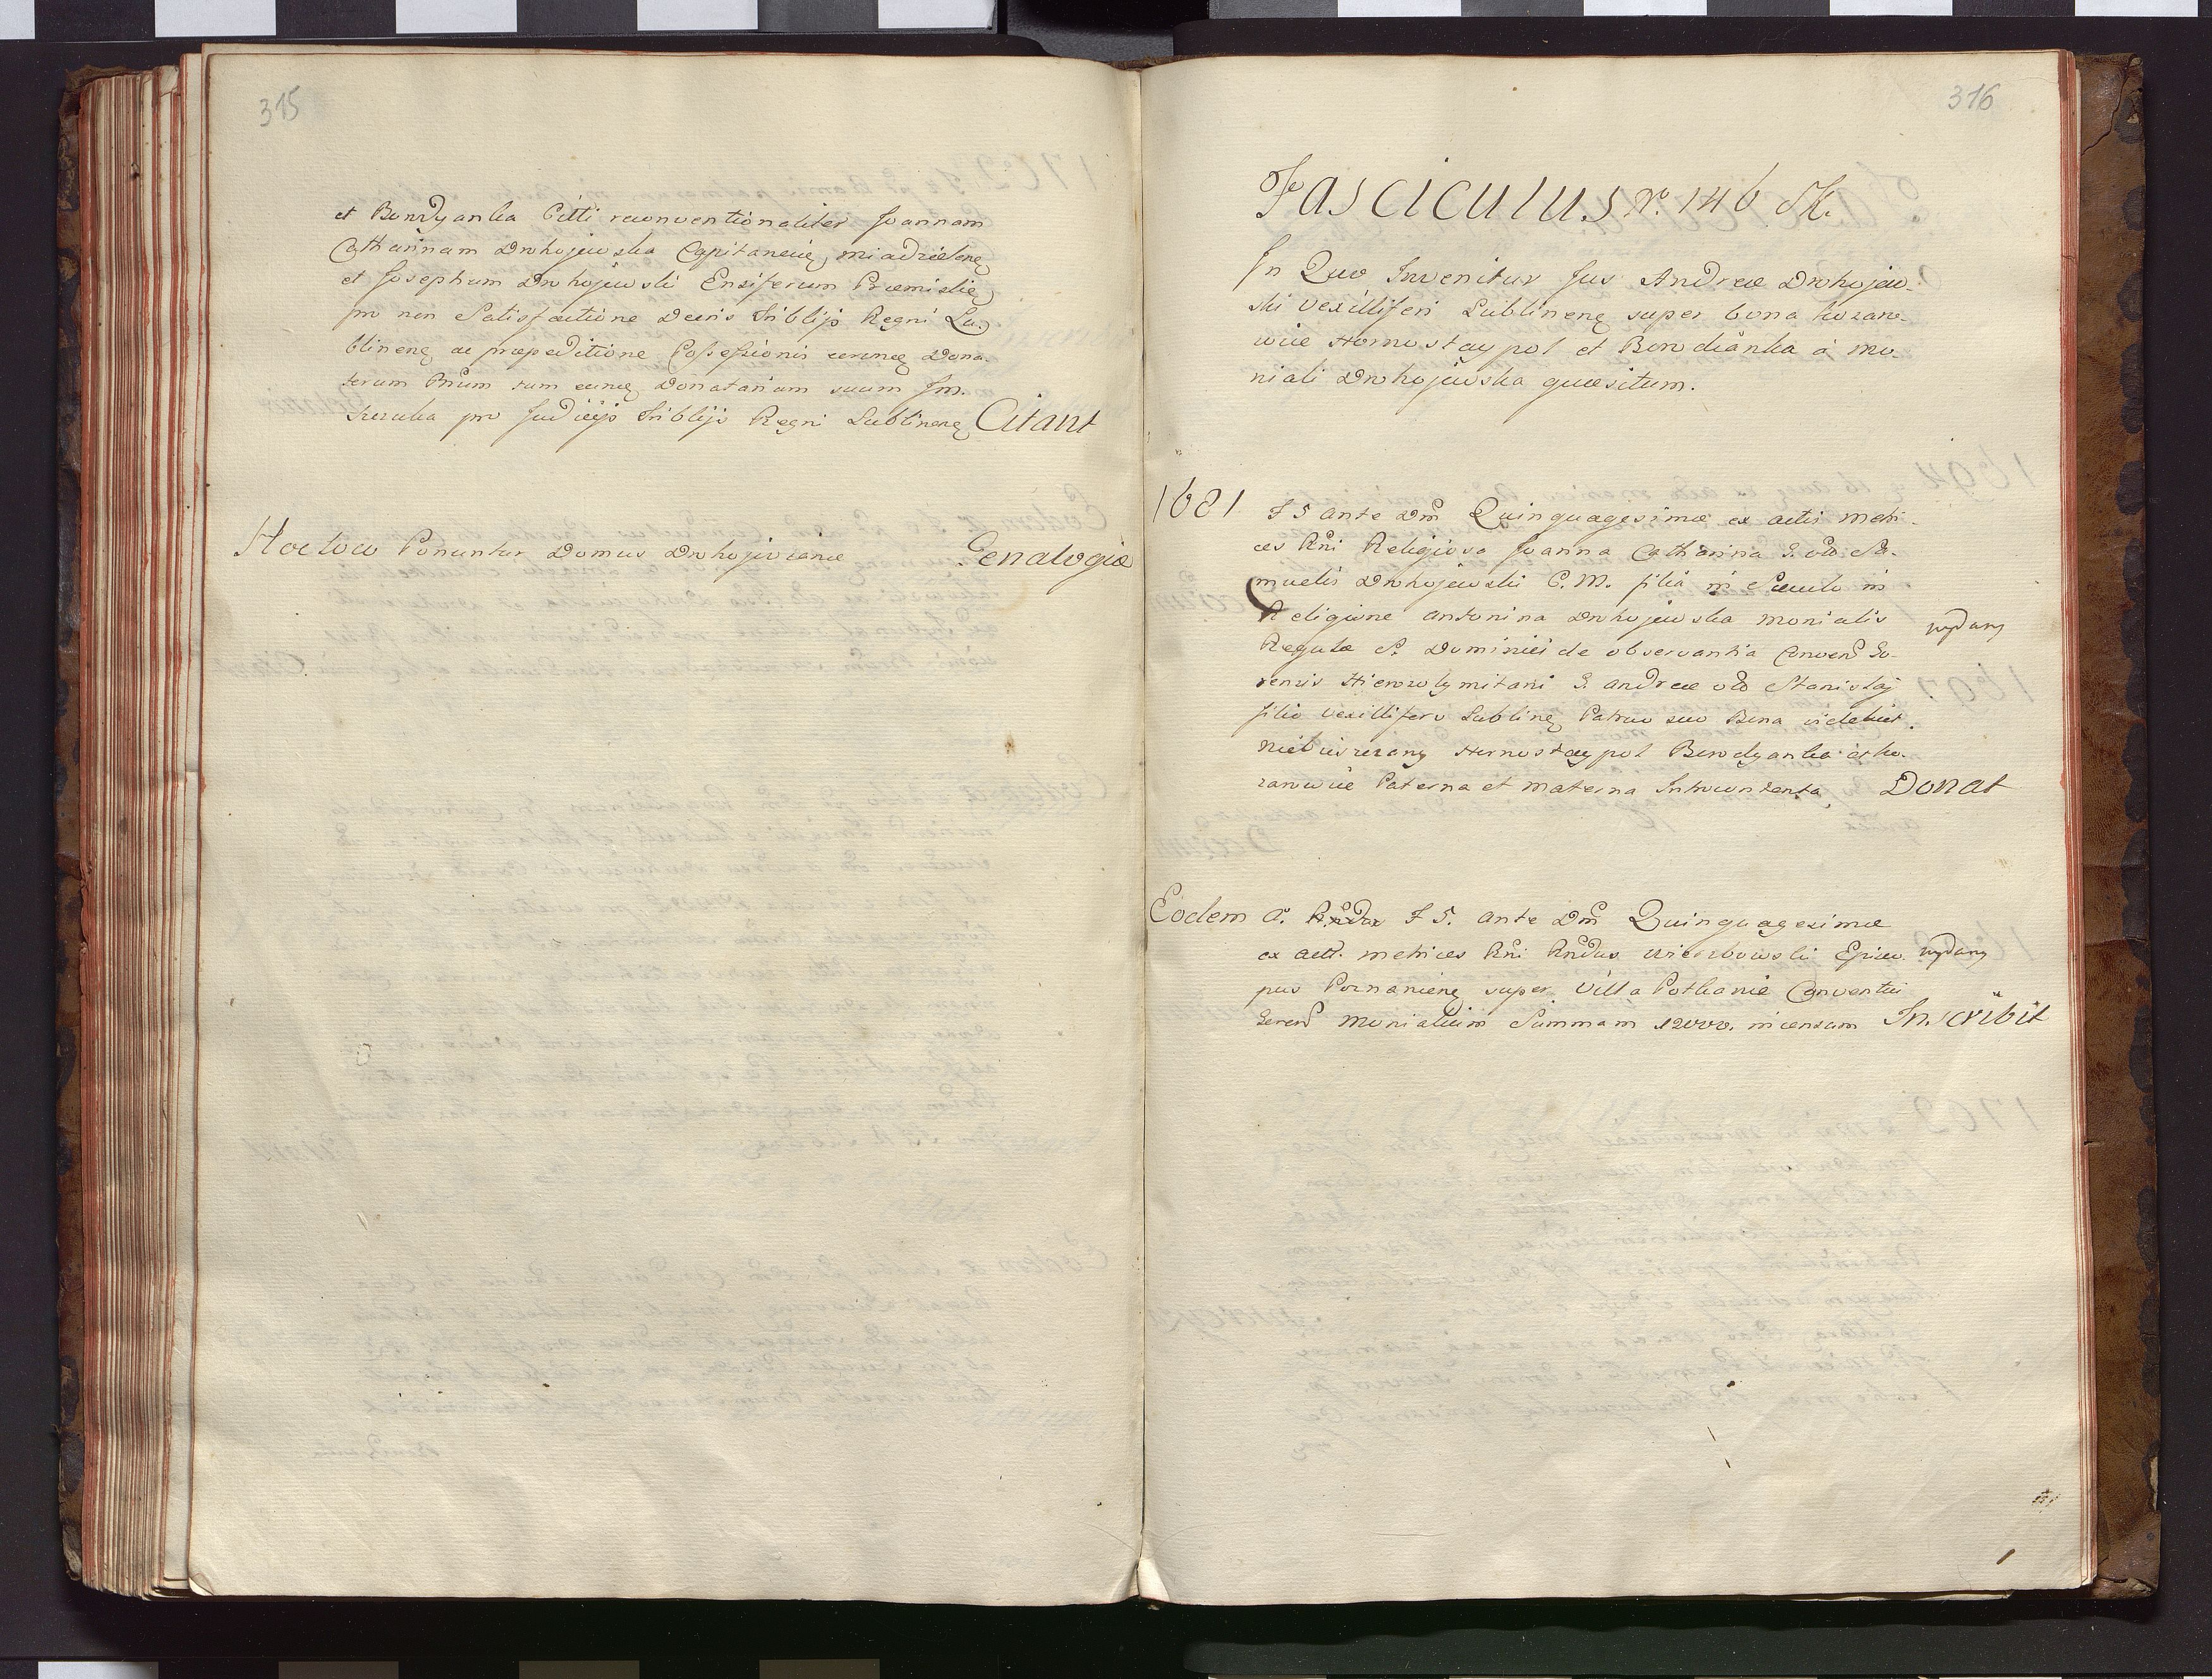 315
et Borodyanka Citti reconventionaliter Joannam
Catharinam Drohojewska Capitaneię miadzielenę
et Josephum Drohojewski Ensiferum Præmislię
pro non Satisfactione Decris Triblijs Regni Lu-
blinenę ac præpeditione Possessionis
terum Pnum tum Donatarium suum Jm.
pro Judicijs Triblijs Regni Lublinenę Citant
Hocloco Ponuntur Domus Drohojoviana Genalogiæ
316
Fasciculus Nr. 146 SK.
In Quo Invenitur Jus Andreæ Drohojew-
ski Vexilliferi Lublinenę super bona kozaro-
wice Hornostaypol et Borodianka á Mo-
niali Drohojewska quæsitum.
1681 F 5 ante Dm̃ Quinquagesimæ ex actis metri-
ces Rñi Religiosa Joanna Catharina G. olo Sa-
muelis Drohojewski C. M. filia in Sæculo in
Religione Antonina Drohojewska monialis
wydany
Regulæ S. Dominici de observantia Convend
Hierozolymitani G. Andreæ olo Stanislaj
filio vexillifero Lublinę Patruo suo Bona videlicet
Hornostaypol Borodyanka et ko-
zarowice Paterna et materna Introcontenta Donat
Eodem A. F 5. ante Dm̃ Quinquagesimæ
ex actt. metrices Rñi Rndus wierzbowski Episco-
wydany
pus Poznanienę super Villa Conventui
monialium Summam 12000. incensum Inscribit